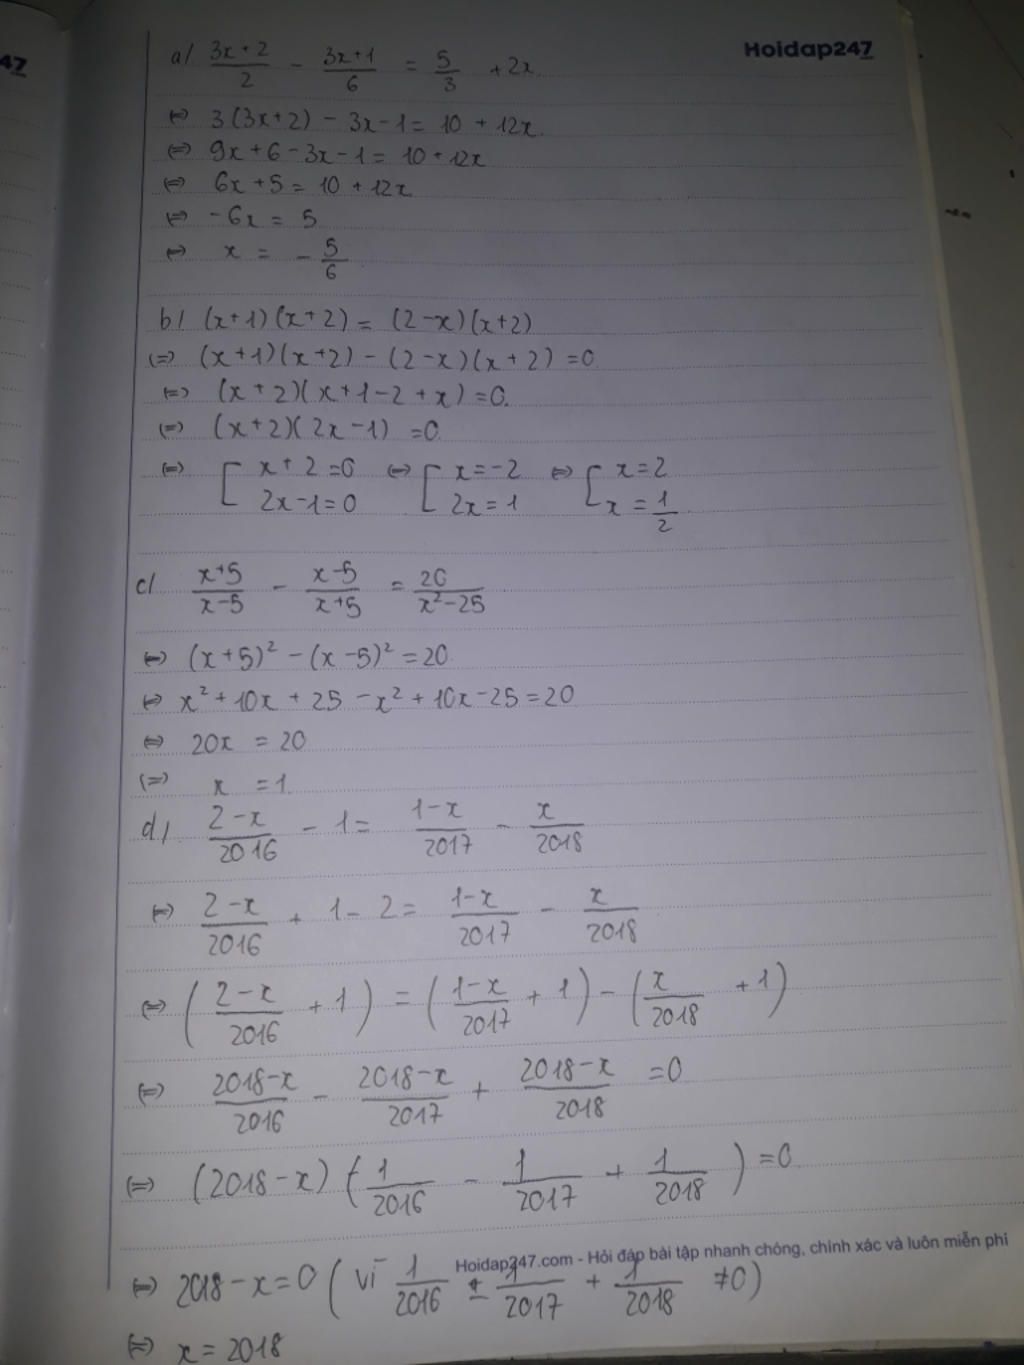 47
Hoidap247
a/ (3x+2)/2 - (3x+1)/6 = 5/3 + 2x.
(=) 3(3x+2) - 3x-1 = 10 + 12x.
(=) 9x+6-3x-1 = 10+12x
(=) 6x+5 = 10 + 12x
(=) -6x = 5
(=) x = -5/6
b/ (x+1)(x+2) = (2-x)(x+2)
(=) (x+1)(x+2) - (2-x)(x+2) = 0
(=) (x+2)(x+1-2+x) = 0.
(=) (x+2)(2x-1) = 0
(=) [ x+2=0 (=) [ x=-2 (=) [ x=2
2x-1=0 2x=1 x=1/2
c/ (x+5)/(x-5) - (x-5)/(x+5) = 20/(x²-25)
(=) (x+5)² - (x-5)² = 20
(=) x²+10x+25-x²+10x-25=20
(=) 20x = 20
(=) x = 1.
d/ (2-x)/2016 - 1 = (1-x)/2017 - x/2018
(=) (2-x)/2016 + 1 - 2 = (1-x)/2017 - x/2018
(=) ((2-x)/2016 + 1) = ((1-x)/2017 + 1) - (x/2018 + 1)
(=) (2018-x)/2016 - (2018-x)/2017 + (2018-x)/2018 = 0
(=) (2018-x)(1/2016 - 1/2017 + 1/2018) = 0
Hoidap247.com - Hỏi đáp bài tập nhanh chóng, chính xác và luôn miễn phí
(=) 2018-x=0 (vì 1/2016 ± 1/2017 + 1/2018 ≠0)
(=) x = 2018